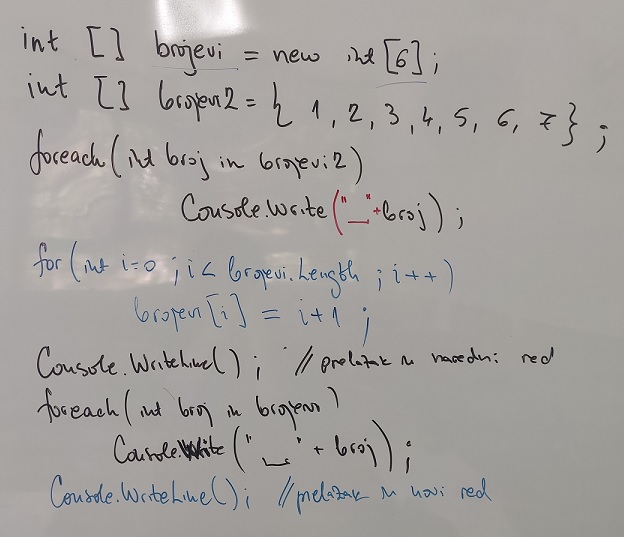 int [] brojevi = new int [6];
int [] brojevi2 = { 1, 2, 3, 4, 5, 6, 7 } ;
foreach (int broj in brojevi2)
Console.Write("␣"+broj) ;
for (int i=0 ; i < brojevi.Length ; i++)
brojevi[i] = i+1 ;
Console.WriteLine() ; // prelazak u naredni red
foreach (int broj in brojevi)
Console.Write("␣" + broj) ;
Console.WriteLine() ; // prelazak u novi red